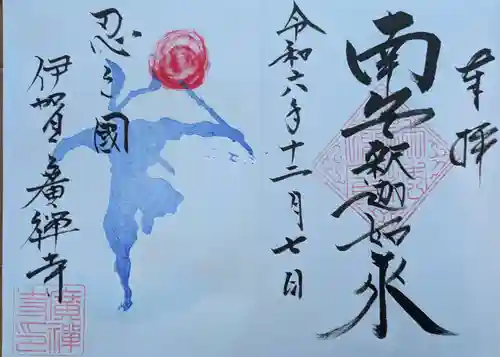 奉拝
南無釈迦如来
令和六年十二月七日
忍びの國
伊賀 廣禅寺
廣禅寺印